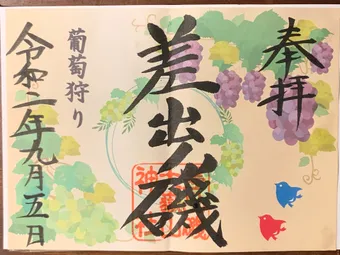 奉拝
差出ノ磯
葡萄狩り
令和二年九月五日